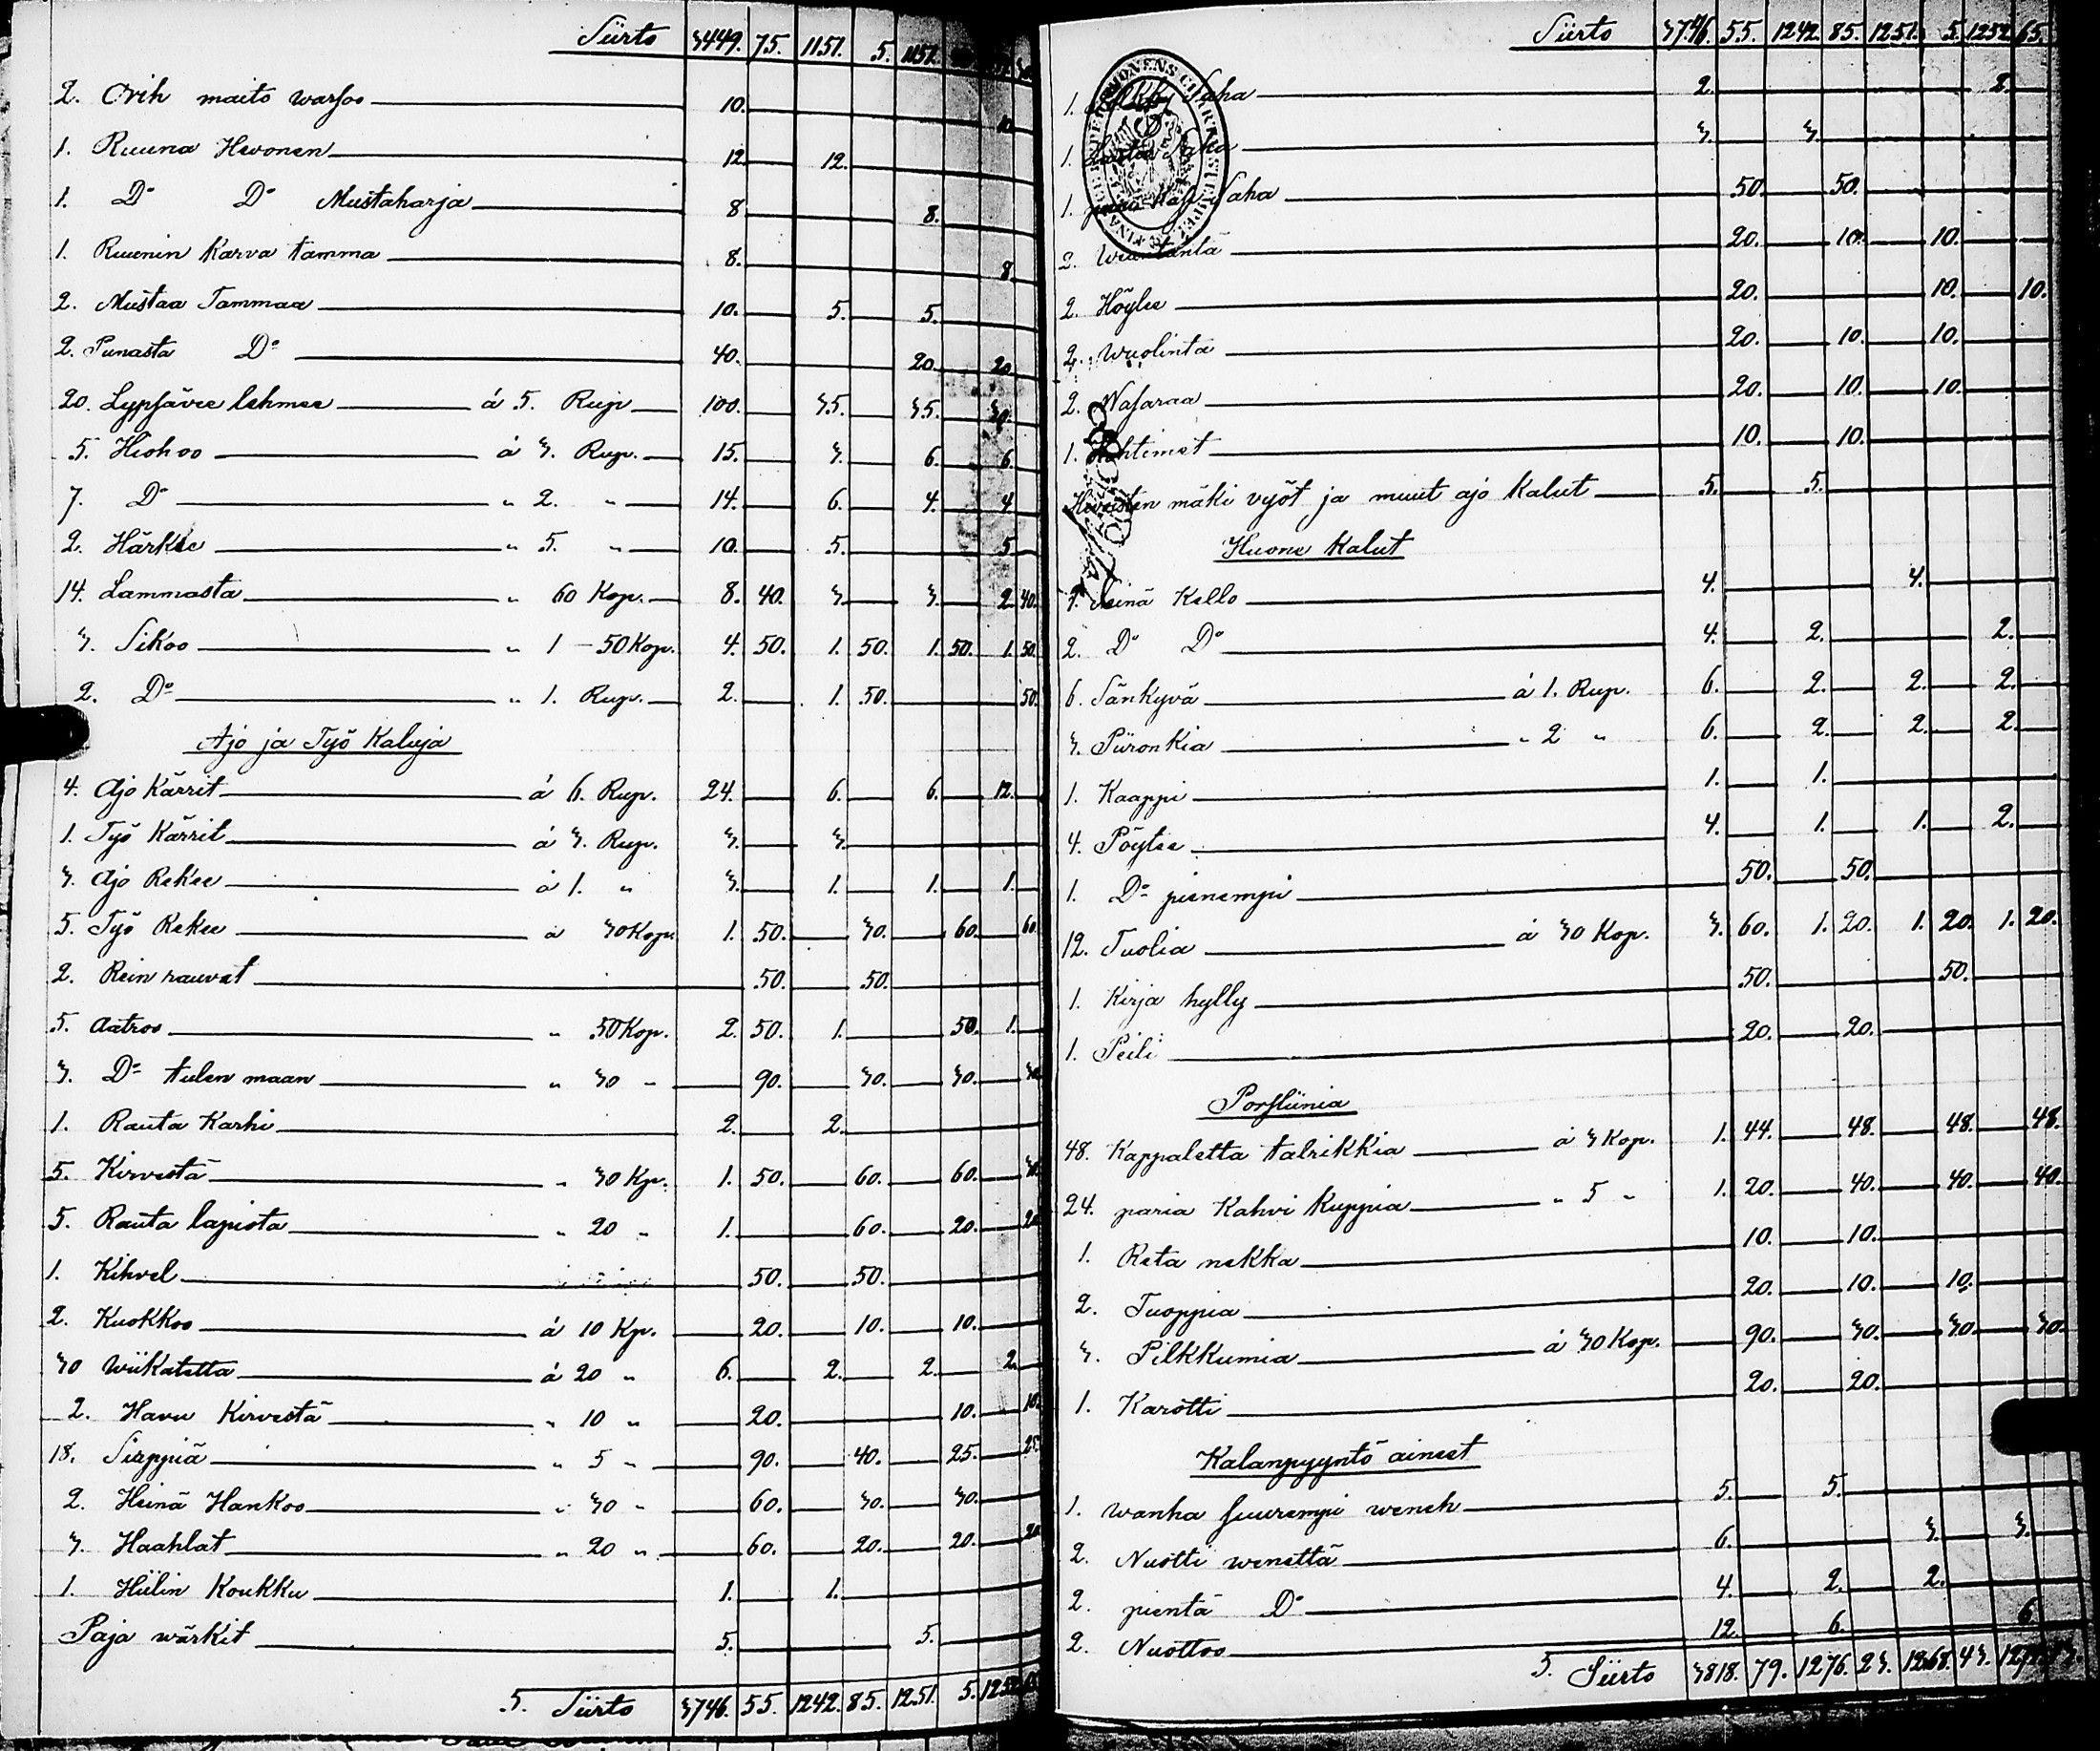 Siirto 3449. 75. 1151. 5. 1151.
2. Orih maito warsoo 10. 10.
1. Ruuna Hevonen 12. 12.
1. Do Do Mustaharja 8. 8.
1. Ruunin Karva tamma 8. 8.
2. Mustaa Tammaa 10. 5. 5.
2. Punasta Do 40. 20. 20.
20. Lypsävee lehmee á 5. Rup. 100. 35. 35. 30.
5. Hiehoo á 3. Rup. 15. 3. 6. 6.
7. Do " 2. " 14. 6. 4. 4.
2. Härkee " 5. " 10. 5. 5.
14. Lammasta " 60 Kop. 8. 40. 3. 3. 2. 40.
3. Sikoo " 1 - 50 Kop. 4. 50. 1. 50. 1. 50. 1. 50.
2. Do " 1. Rup. 2. 1. 50. 50.
Ajo ja Työ Kaluja
4. Ajo Kärrit á 6. Rup. 24. 6. 6. 12.
1. Työ Kärrit á 3. Rup. 3. 3.
3. Ajo Rekee á 1. " 3. 1. 1. 1.
5. Työ Rekee á 30 Kop. 1. 50. 30. 60. 60.
2. Rein rauvat 50. 50.
5. Aatroo " 50 Kop. 2. 50. 1. 50. 1.
3. Do tulen maan " 30 " 90. 30. 30. 30.
1. Rauta Karhi 2. 2.
5. Kirvestä " 30 Kp. 1. 50. 60. 60. 30.
5. Rauta lapiota " 20 " 1. 60. 20. 20.
1. Kihvel 50. 50.
2. Kuokkoo á 10 Kp. 20. 10. 10.
30 Wiikatetta á 20 " 6. 2. 2. 2.
2. Havu Kirvestä " 10 " 20. 10. 10.
18. Sirppiä " 5 " 90. 40. 25. 25.
2. Heinä Hankoo " 30 " 60. 30. 30.
3. Haahlat " 20 " 60. 20. 20. 20.
1. Hiilin Koukku 1. 1.
Paja wärkit 5. 5.
5. Siirto 3746. 55. 1242. 85. 1251. 5. 1252.
Siirto 3746. 55. 1242. 85. 1251. 5. 1252. 65.
1. Saha 2. 2.
1. Saha 3. 3.
1. Saha 50. 50.
2. 20. 10. 10.
2. Höylee 20. 10. 10.
2. Wuolinta 20. 10. 10.
2. Wasaraa 20. 10. 10.
1. Hohtimet 10. 10.
Hevoisten mäki vyöt ja muut ajo Kalut 5. 5.
Huone Kalut
1. Seinä Kello 4. 4.
2. Do Do 4. 2. 2.
6. Sänkyvä á 1. Rup. 6. 2. 2. 2.
3. Piironkia " 2 " 6. 2. 2. 2.
1. Kaappi 1. 1.
4. Pöytee 4. 1. 1. 2.
1. Do pienempi 50. 50.
12. Tuolia á 30 Kop. 3. 60. 1. 20. 1. 20. 1. 20.
1. Kirja hylly 50. 50.
1. Peili 20. 20.
Porsliinia
48. Kappaletta talrikkia á 3 Kop. 1. 44. 48. 48. 48.
24. paria Kahvi Kuppia " 5 " 1. 20. 40. 40. 40.
1. Reta nekka 10. 10.
2. Tuoppia 20. 10. 10.
3. Pilkkumia á 30 Kop. 90. 30. 30. 30.
1. Karotti 20. 20.
Kalanpyyntö aineet
1. wanha suurempi weneh 5. 5.
2. Nuotti wenettä 6. 3. 3.
2. pientä Do 4. 2. 2.
2. Nuottoo 12. 6. 6.
5. Siirto 3818. 79. 1276. 23. 1268. 43.